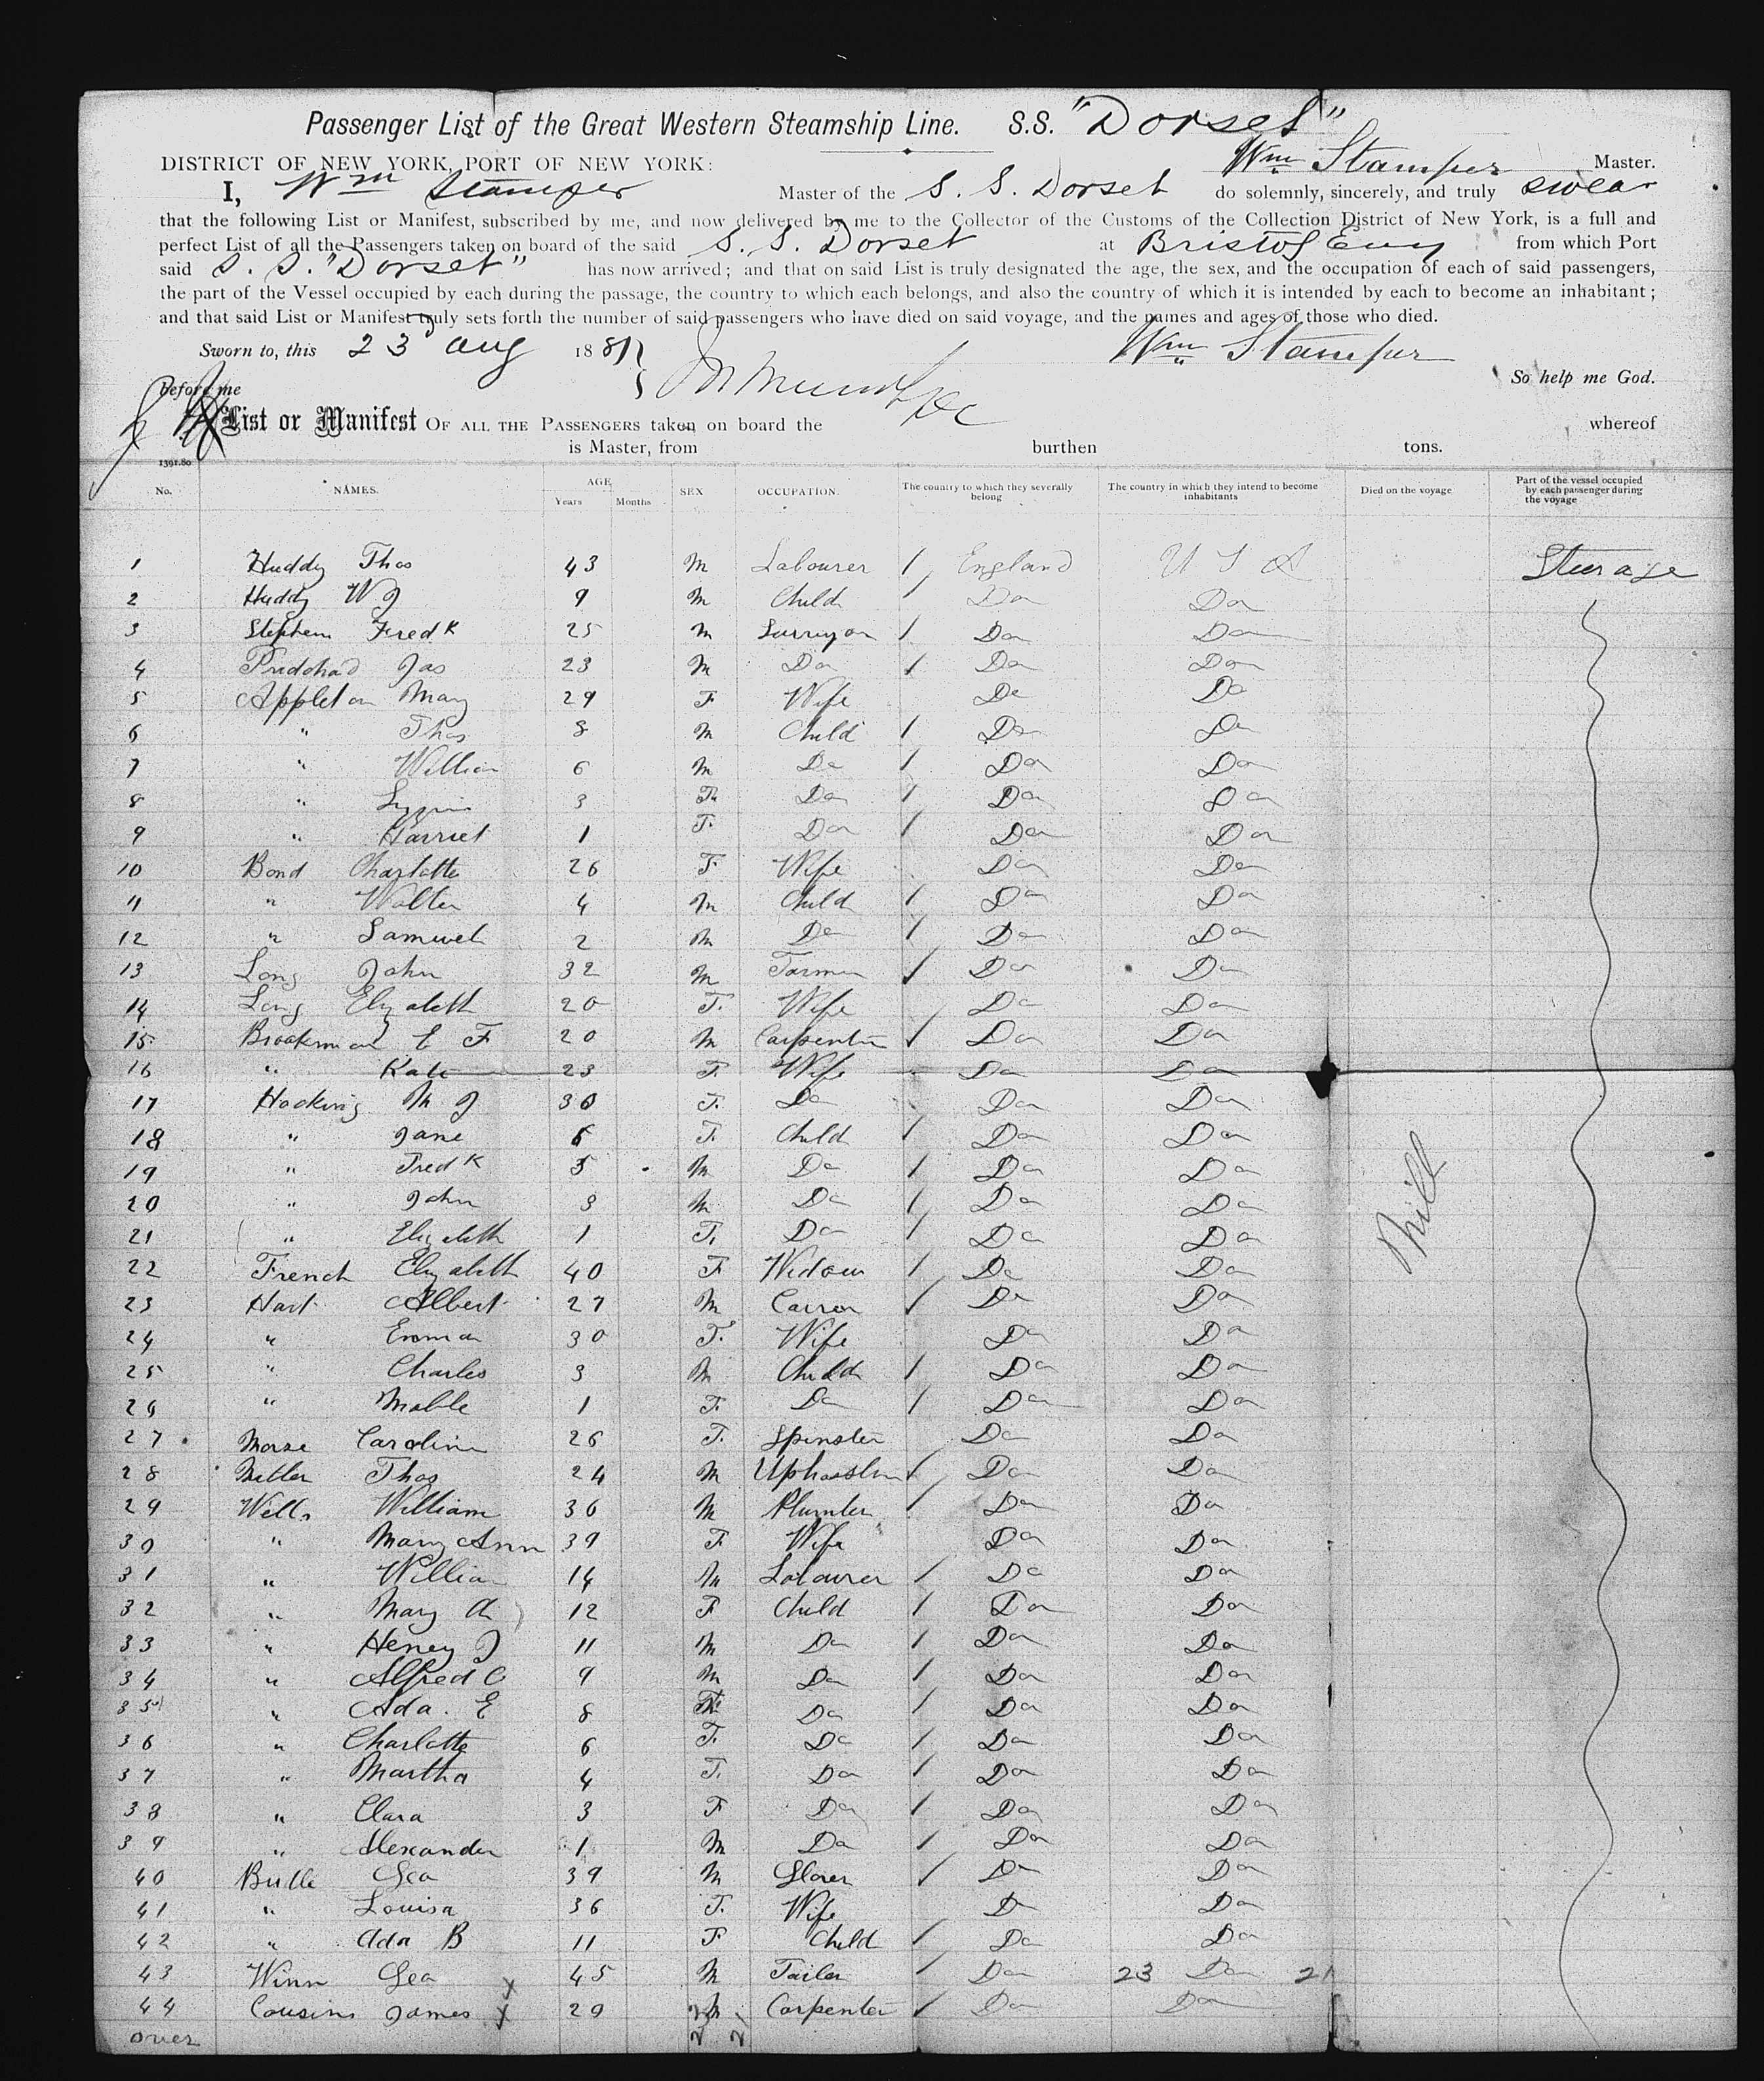 Passenger List of the Great Western Steamship Line. S.S. "Dorset"
DISTRICT OF NEW YORK, PORT OF NEW YORK: Wm Stamper Master.
I, Wm Stamper Master of the S. S. Dorset do solemnly, sincerely, and truly swear
that the following List or Manifest, subscribed by me, and now delivered by me to the Collector of the Customs of the Collection District of New York, is a full and
perfect List of all the Passengers taken on board of the said S. S. Dorset at Bristol Eng from which Port
said S. S. "Dorset" has now arrived; and that on said List is truly designated the age, the sex, and the occupation of each of said passengers,
the part of the Vessel occupied by each during the passage, the country to which each belongs, and also the country of which it is intended by each to become an inhabitant;
and that said List or Manifest truly sets forth the number of said passengers who have died on said voyage, and the names and ages of those who died.
Sworn to, this 23 Aug 1881 Wm Stamper
Before me So help me God.
List or Manifest OF ALL THE PASSENGERS taken on board the whereof
is Master, from burthen tons.
1391.80
No. NAMES. AGE Years Months SEX OCCUPATION. The country to which they severally belong The country in which they intend to become inhabitants Died on the voyage Part of the vessel occupied by each passenger during the voyage
1 Huddy Thos 43 M Labourer / England U S A Steerage
2 Huddy W J 9 M Child / Do Do
3 Stephens Fredk 25 M / Do Do
4 Jas 23 M Do / Do Do
5 Appleton Mary 29 F Wife Do Do
6 " Thos 8 M Child / Do Do
7 " William 6 M Do / Do Do
8 " Lizzie 3 F Do / Do Do
9 " Harriet 1 F. Do / Do Do
10 Bond Charlotte 26 F Wife Do Do
11 " Walter 4 M Child / Do Do
12 " Samuel 2 M Do / Do Do
13 Long John 32 M Farmer / Do Do
14 Long Elizabeth 20 F. Wife Do Do
15 Brookman E F 20 M Carpenter / Do Do
16 " Kate 23 F. Wife Do Do
17 Hocking M J 30 F. Do Do Do
18 " Jane 6 F. Child / Do Do
19 " Fredk 5 M Do / Do Do
20 " John 3 M Do / Do Do
21 " Elizabeth 1 F. Do / Do Do
22 French Elizabeth 40 F Widow / Do Do
23 Hart Albert 27 M / Do Do
24 " Emma 30 F. Wife Do Do
25 " Charles 3 M Child / Do Do
26 " Mable 1 F. Do / Do Do
27 Morse Caroline 26 F. Spinster Do Do
28 Thos 24 M / Do Do
29 Wells William 36 M Plumber / Do Do
30 " Mary Ann 39 F Wife Do Do
31 " William 14 M Labourer / Do Do
32 " Mary A 12 F Child / Do Do
33 " Henry J 11 M Do / Do Do
34 " Alfred C 9 M Do / Do Do
35 " Ada. E 8 F. Do / Do Do
36 " Charlotte 6 F. Do / Do Do
37 " Martha 4 F. Do / Do Do
38 " Clara 3 F Do / Do Do
39 " Alexander 1 M Do / Do Do
40 Geo 39 M Glover / Do Do
41 " Louisa 36 F. Wife Do Do
42 " Ada B 11 F Child / Do Do
43 Winn Geo x 45 M Tailor / Do 23 Do 21
44 Cousins James x 29 M Carpenter / Do Do
over 23 21